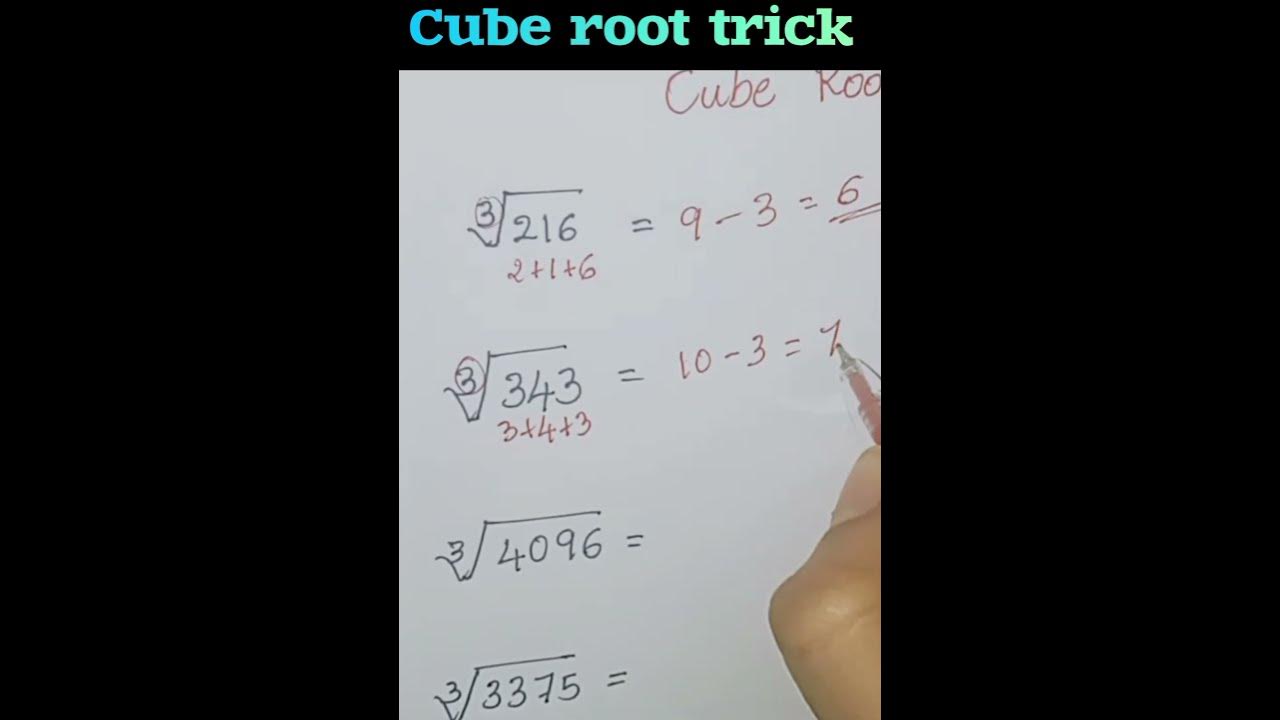 Cube root trick
Cube Roo
∛216 = 9 - 3 = 6
2+1+6
∛343 = 10 - 3 = 7
3+4+3
∛4096 =
∛3375 =